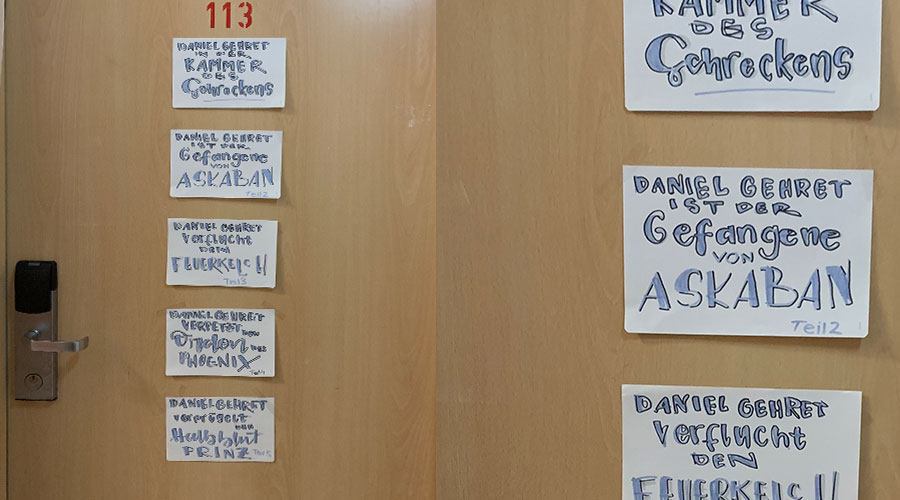 113
DANIEL GEHRET
IN DER
KAMMER
DES
Schreckens
DANIEL GEHRET
IST DER
Gefangene
VON
ASKABAN
Teil 2
DANIEL GEHRET
Verflucht
DEN
FEUERKELCH
Teil 3
DANIEL GEHRET
VERPETZT DEN
Orden DES
PHOENIX
Teil 4
DANIEL GEHRET
verprügelt
DEN
Halbblut
PRINZ
Teil 5
KAMMER
DES
Schreckens
DANIEL GEHRET
IST DER
Gefangene
VON
ASKABAN
Teil 2
DANIEL GEHRET
Verflucht
DEN
FEUERKELCH